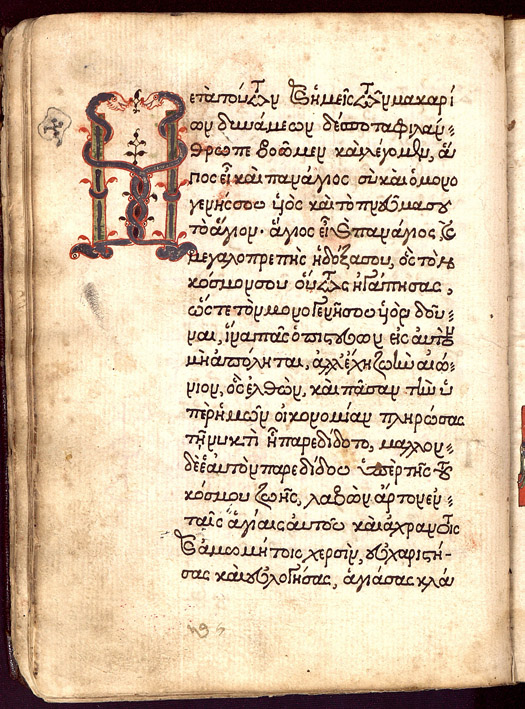 Μετὰ τούτων καὶ ἡμεῖς τῶν μακαρί
ων δυνάμεων δέσποτα φιλάν-
θρωπε βοῶμεν καὶ λέγομεν, ἅγι
ος εἶ καὶ πανάγιος σὺ καὶ ὁ μονο
γενής σου υἱὸς καὶ τὸ πνεῦμα σου
τὸ ἅγιον· ἅγιος εἶ καὶ πανάγιος, καὶ
μεγαλοπρεπὴς ἡ δόξα σου, ὃς τὸν
κόσμον σου οὕτως ἠγάπησας,
ὥστε τὸν μονογενῆ σου υἱὸν δοῦ-
ναι, ἵνα πᾶς ὁ πιστεύων εἰς αὐτὸν
μὴ ἀπόληται, ἀλλ' ἔχῃ ζωὴν αἰώ-
νιον, ὃς ἐλθὼν, καὶ πᾶσαν τὴν ὑ
πὲρ ἡμῶν οἰκονομίαν πληρώσας
τῇ νυκτὶ ᾗ παρεδίδοτο, μᾶλλον-
δὲ ἑαυτὸν παρεδίδου ὑπὲρ τῆς τοῦ
κόσμου ζωῆς, λαβὼν ἄρτον ἐν-
ταῖς ἁγίαις αὐτοῦ καὶ ἀχράντοις
καὶ ἀμωμήτοις χερσὶν, εὐχαριστή-
σας καὶ εὐλογήσας, ἁγιάσας κλά